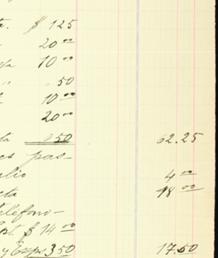 $ 1.25
20 00
10 00
.50
10 00
20 00
.50 62.25
es pas-
4 00
ta 18 00
telefono-
$ 14 00
y Expr. 3.50 17.50